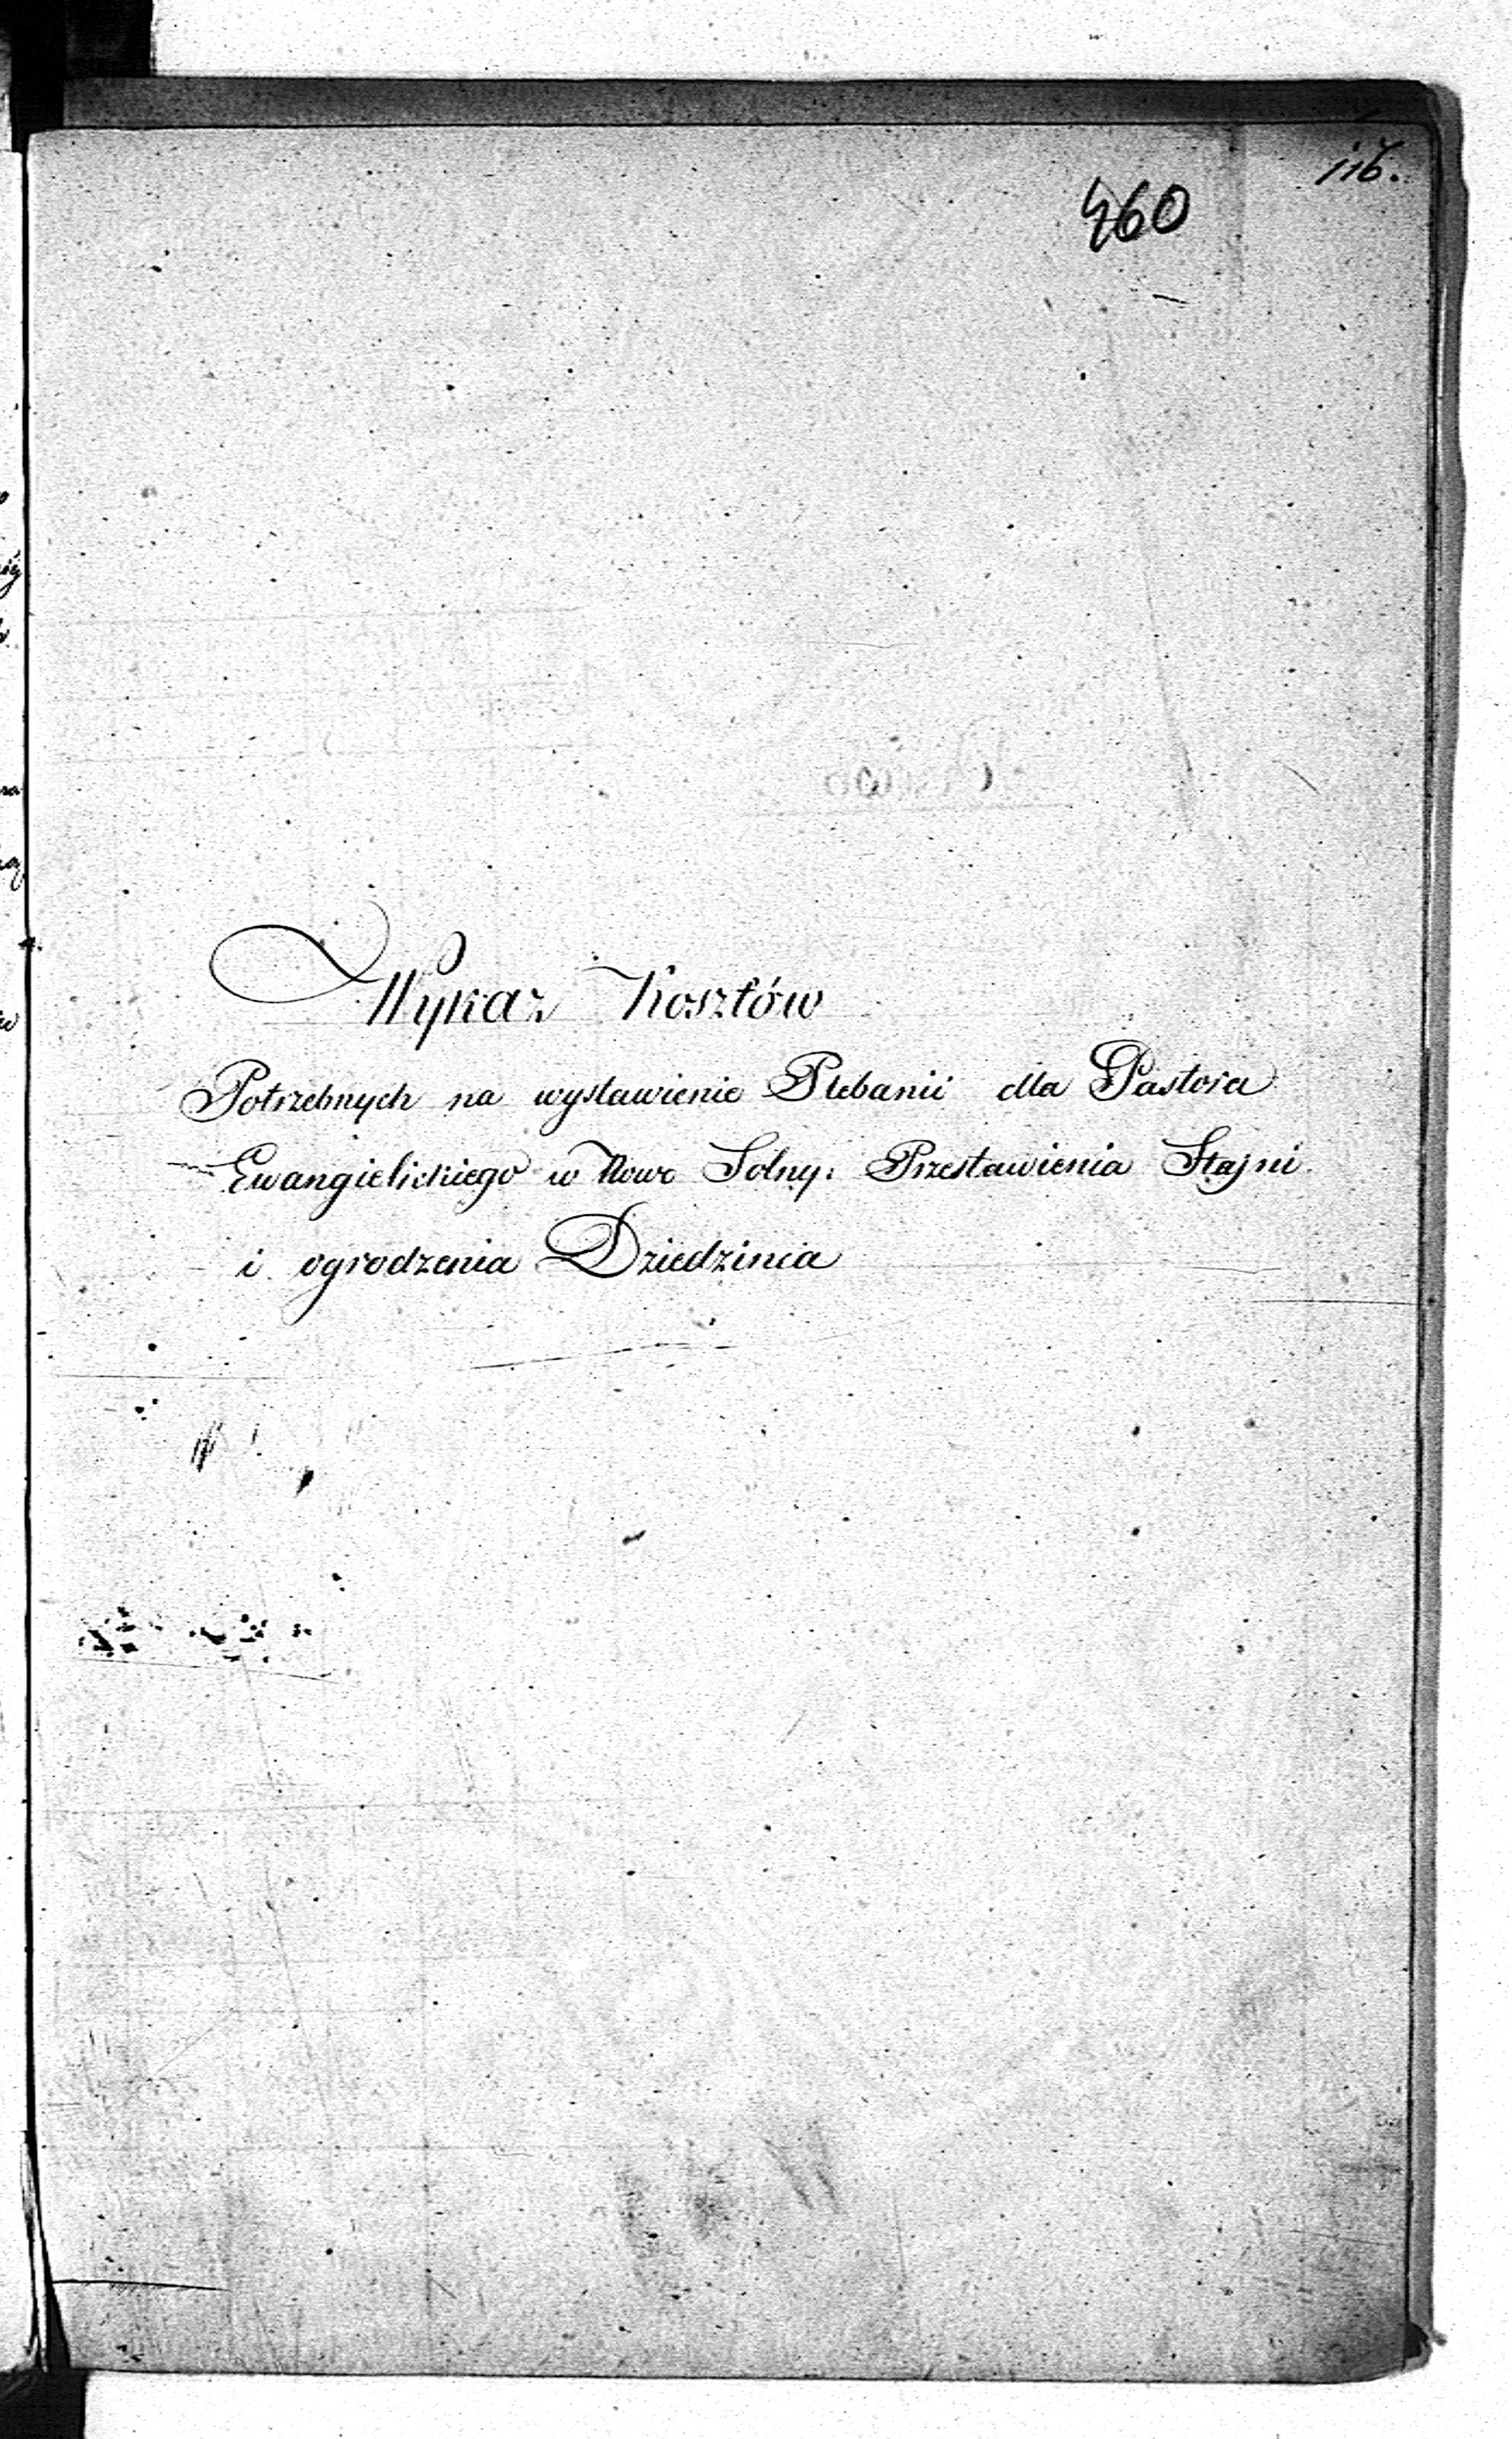 116.
460
Wykaz Kosztów
Potrzebnych na wystawienie Plebanii dla Pastora
Ewangielickiego w Nowo Solny. Przestawienia Stajni
i ogrodzenia Dziedzinia